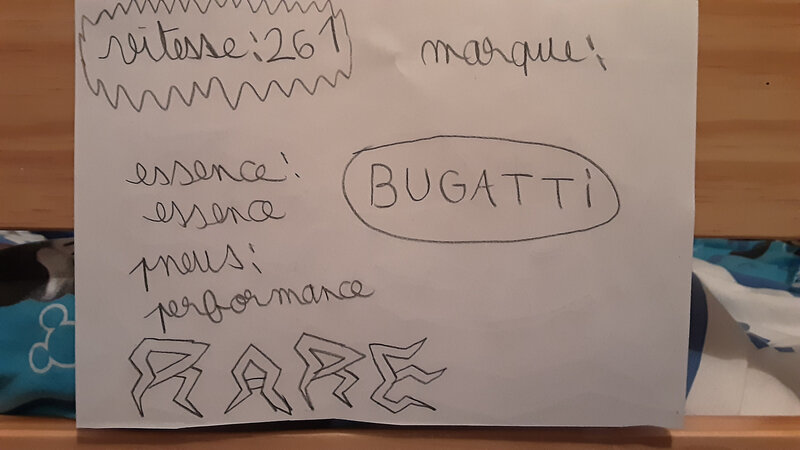 vitesse:261
marque:
essence:
essence
BUGATTi
pneus:
performance
RARE